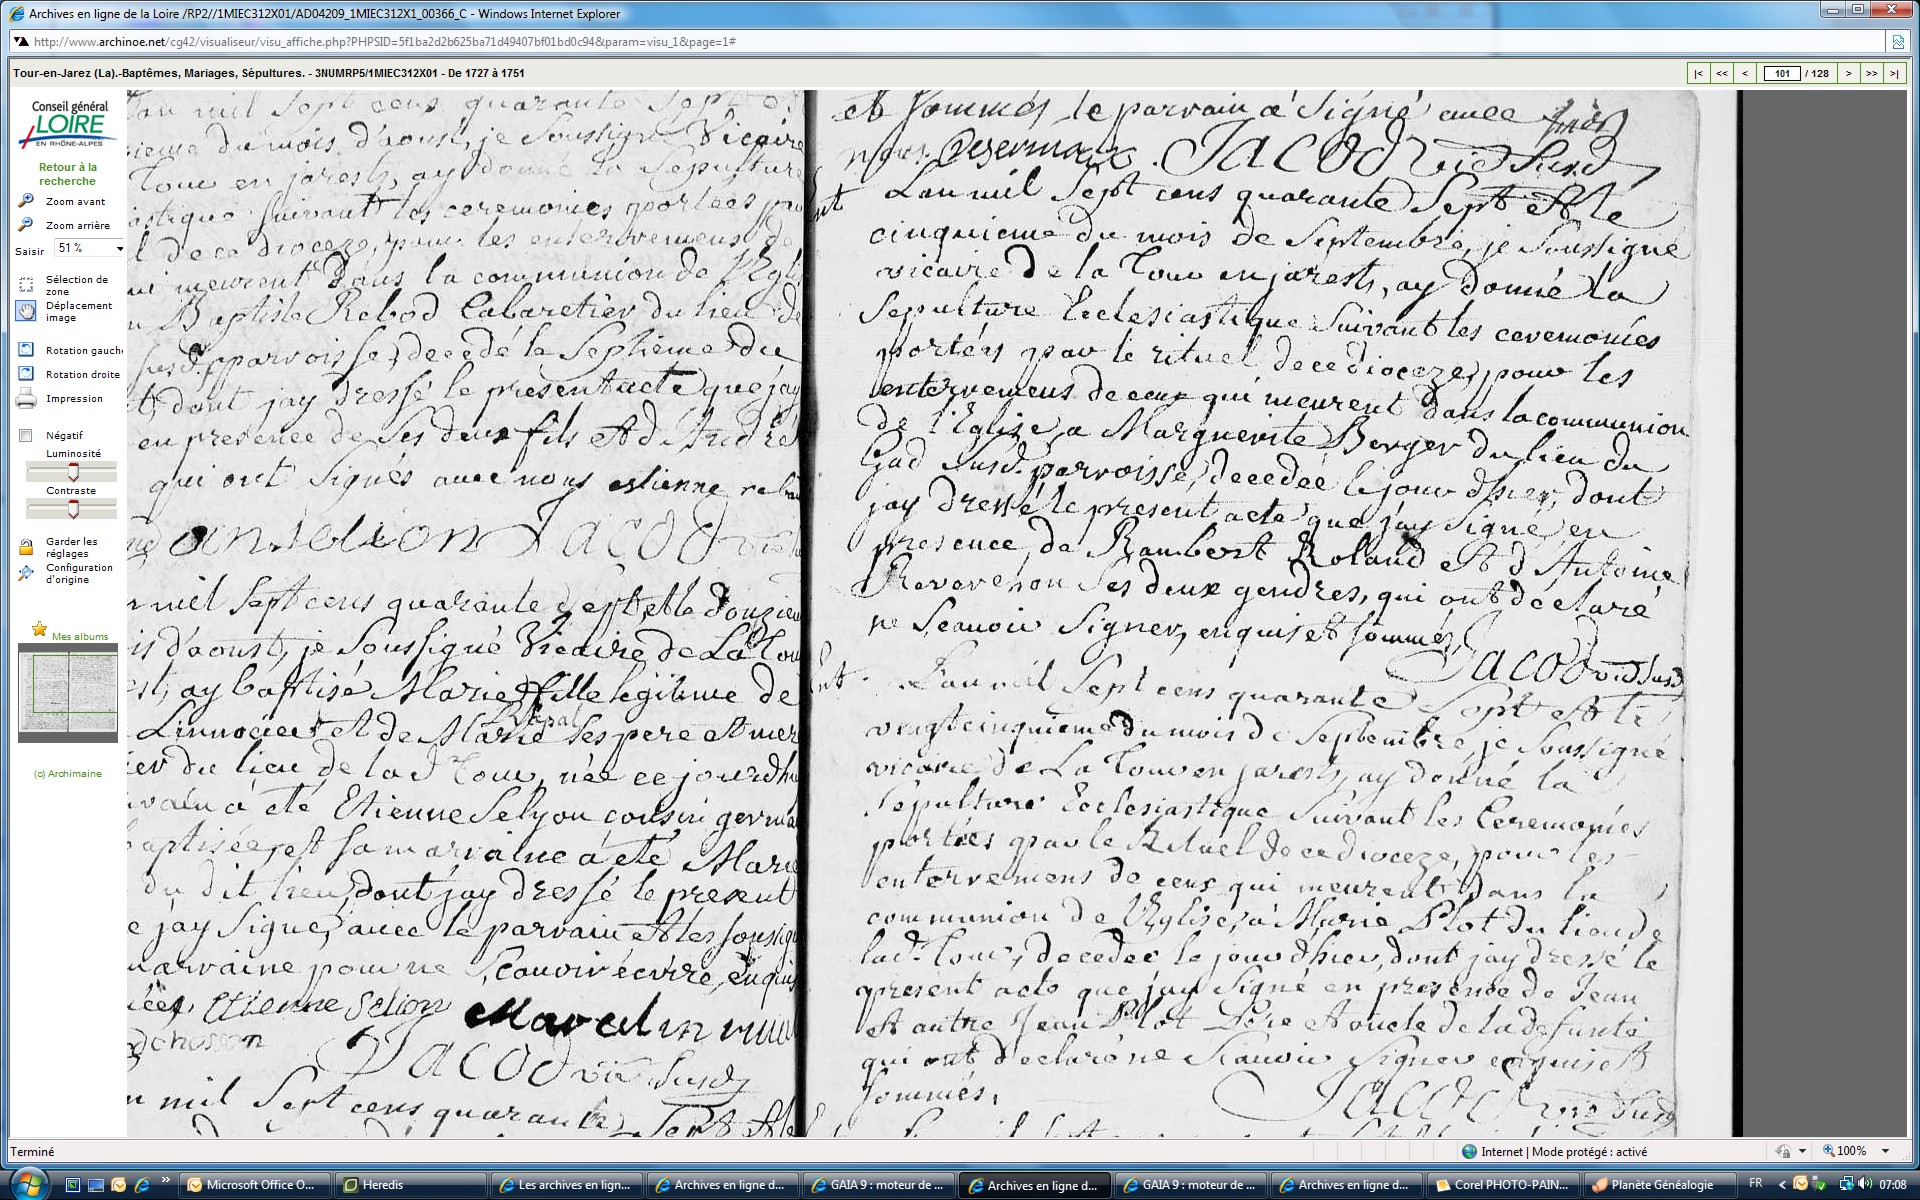 Archives en ligne de la Loire /RP2//1MIEC312X01/AD04209_1MIEC312X1_00366_C - Windows Internet Explorer
http://www.archinoe.net/cg42/visualiseur/visu_affiche.php?PHPSID=5f1ba2d2b625ba71d49407bf01bd0c94&param=visu_1&page=1#
Tour-en-Jarez (La).-Baptêmes, Mariages, Sépultures. - 3NUMRP5/1MIEC312X01 - De 1727 à 1751
|< << < 101 / 128 > >> >|
Conseil général
LOIRE
EN RHÔNE-ALPES
Retour à la
recherche
Zoom avant
Zoom arrière
Saisir 51 %
Sélection de
zone
Déplacement
image
Rotation gauch
Rotation droite
Impression
Négatif
Luminosité
Contraste
Garder les
réglages
Configuration
d'origine
Mes albums
(c) Archimaine
an mil Sept cens quarante Sept et
ieme du mois d'aoust, je Soussigné Vicaire
Tour en jarests, ay donné la Sepulture
astique suivant les ceremonies portées par
l de ce dioceze, pour les enterremens de
ui meurent dans la communion de l'Egli
n Baptiste Rebod Cabaretier du lieu de
susd. parroisse, decedé le Septieme du
t, dont jay dressé le present acte que jay
en presence de Ses deux fils et d'André
qui ont Signés avec nous estienne rebau
JACOD vic
n mil Sept cens quarante Sept, et le douzieme
is d'aoust, je Soussigné Vicaire de La Tour
est, ay baptisé Marie fille legitime de
Linnocier et de Marie Ses pere et mere
er du lieu de lad. Tour, née ce jourdhu
rrain a été Etienne Selyon cousin germa
baptisée, et sa marraine a été Marie
du dit lieu, dont jay dressé le present
e jay Signé, avec le parrain et les soussig
marraine pour ne Scauoir écrire, enquis
Etienne Selion
JACOD vic Susd
n mil Sept cens quarante Sept et le
et Sommés le parrain a Signé avec
nous. Desermaux. JACOD vic Susd
L'an mil Sept cens quarante Sept et le
cinquieme du mois de Septembre, je Soussigné
vicaire de la Tour en jarests, ay donné la
Sepulture Ecclesiastique Suivant les ceremonies
portées par le rituel de ce dioceze, pour les
enterremens de ceux qui meurent dans la communion
de l'Eglise, a Marguerite Berger du lieu du
Gad Susd. parroisse, decedée le jour dhier, dont
jay dressé le present acte que jay Signé en
presence de Rambert Roland et d'Antoine
Reverchon Ses deux gendres, qui ont déclaré
ne Scauoir Signer, enquis et Sommés.
JACOD vic Susd
L'an mil Sept cens quarante Sept et le
vingtcinquieme du mois de Septembre, je Soussigné
vicaire de La Tour en jarests, ay donné la
Sepulture Ecclesiastique Suivant les Ceremonies
portées par le Rituel de ce dioceze, pour les
enterremens de ceux qui meurent dans la
communion de l'Eglise, a Marie Plot du lieu de
lad. Tour, decedée le jour dhier, dont jay dressé le
present acte que jay Signé en presence de Jean
et autre Jean Plot Pere et oncle de la defunte
qui ont declaré ne Scauoir Signer enquis et
Sommés.
JACOD vic Susd
Terminé
Internet | Mode protégé : activé
100%
Microsoft Office O...
Heredis
Les archives en lign...
Archives en ligne d...
GAIA 9 : moteur de ...
Archives en ligne d...
GAIA 9 : moteur de ...
Archives en ligne d...
Corel PHOTO-PAIN...
Planète Généalogie
FR
07:08